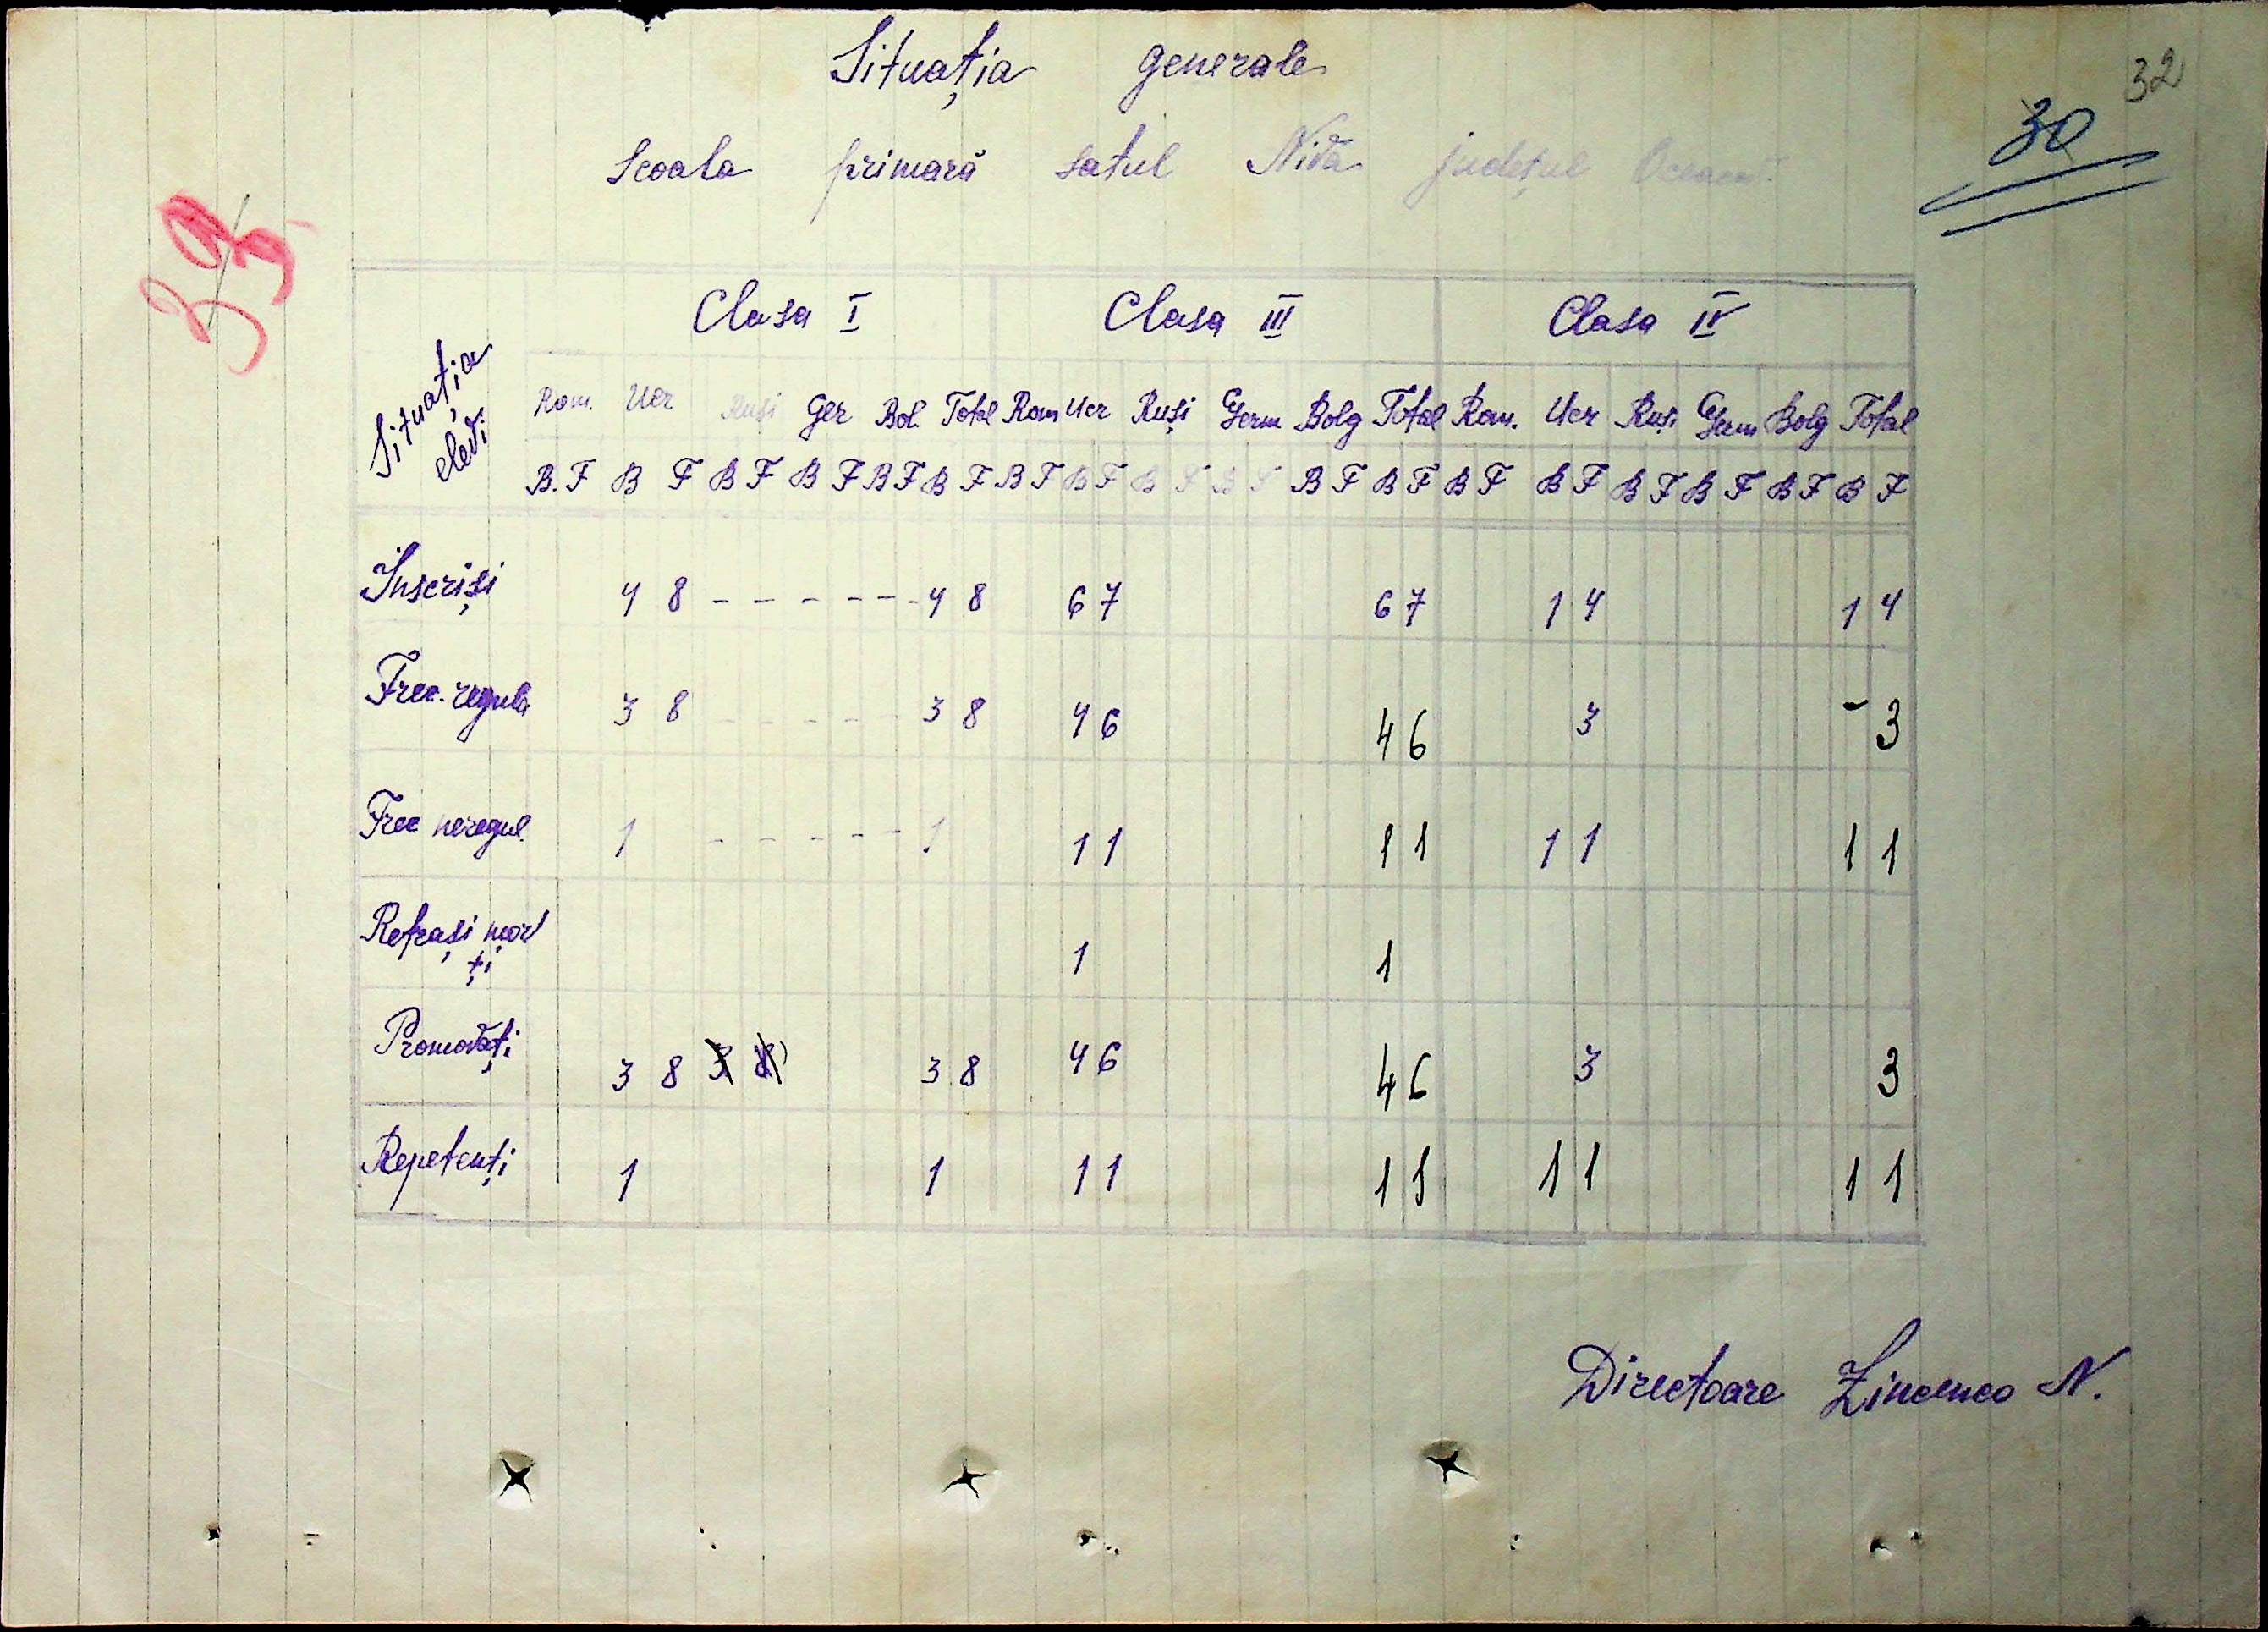 32
30
Situația generale
Scoala primară satul Niva județul Oceacov.
39
Situația elevi
Clasa I Clasa III Clasa IV
Rom. Ucr Ruși Ger Bol. Total Rom Ucr Ruși Germ Bolg Total Rom. Ucr Ruși Germ Bolg Total
B. F B F B F B F B F B F B F B F B F B F B F B F B F B F B F B F B F B F
Inscriși 4 8 - - - - - - 4 8 6 7 6 7 1 4 1 4
Frec. regula 3 8 - - - - - 3 8 4 6 4 6 3 - 3
Frec neregul. 1 - - - - - 1 1 1 1 1 1 1 1 1
Retrași mor
ți 1 1
Promovați 3 8 3 8 3 8 4 6 4 6 3 3
Repetenți 1 1 1 1 1 1 1 1 1 1
Directoare Zincenco N.